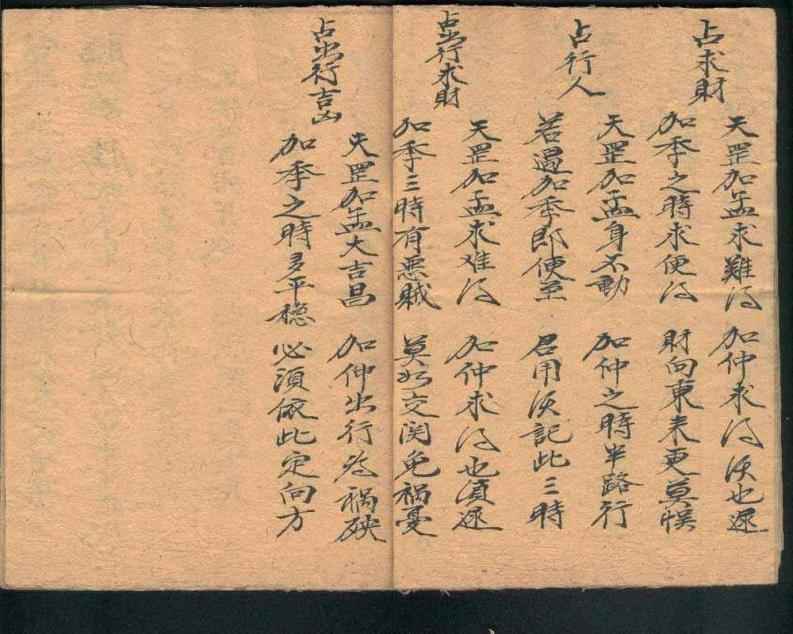 占求財
天罡加孟求難得 加仲求得須也遲
加季之時求便得 財向東来更莫悮
占行人
天罡加孟身不動 加仲之時半路行
若遇加季即便至 君用須記此三時
占出行求財
天罡加孟求难得 加仲求得也須遲
加季三時有惡賊 莫如交関免禍憂
占出行吉凶
天罡加孟大吉昌 加仲出行為禍殃
加季之時多平穏 必須依此定向方